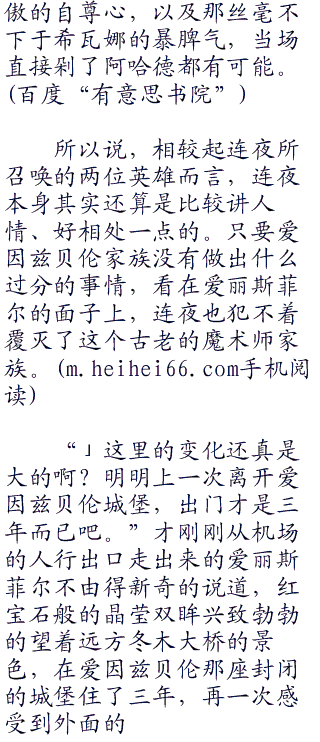 傲的自尊心，以及那丝毫不
下于希瓦娜的暴脾气，当场
直接剁了阿哈德都有可能。
(百度“有意思书院”)
所以说，相较起连夜所
召唤的两位英雄而言，连夜
本身其实还算是比较讲人
情、好相处一点的。只要爱
因兹贝伦家族没有做出什么
过分的事情，看在爱丽斯菲
尔的面子上，连夜也犯不着
覆灭了这个古老的魔术师家
族。(m.heihei66.com手机阅
读)
“」这里的变化还真是
大的啊？明明上一次离开爱
因兹贝伦城堡，出门才是三
年而已吧。”才刚刚从机场
的人行出口走出来的爱丽斯
菲尔不由得新奇的说道，红
宝石般的晶莹双眸兴致勃勃
的望着远方冬木大桥的景
色，在爱因兹贝伦那座封闭
的城堡住了三年，再一次感
受到外面的